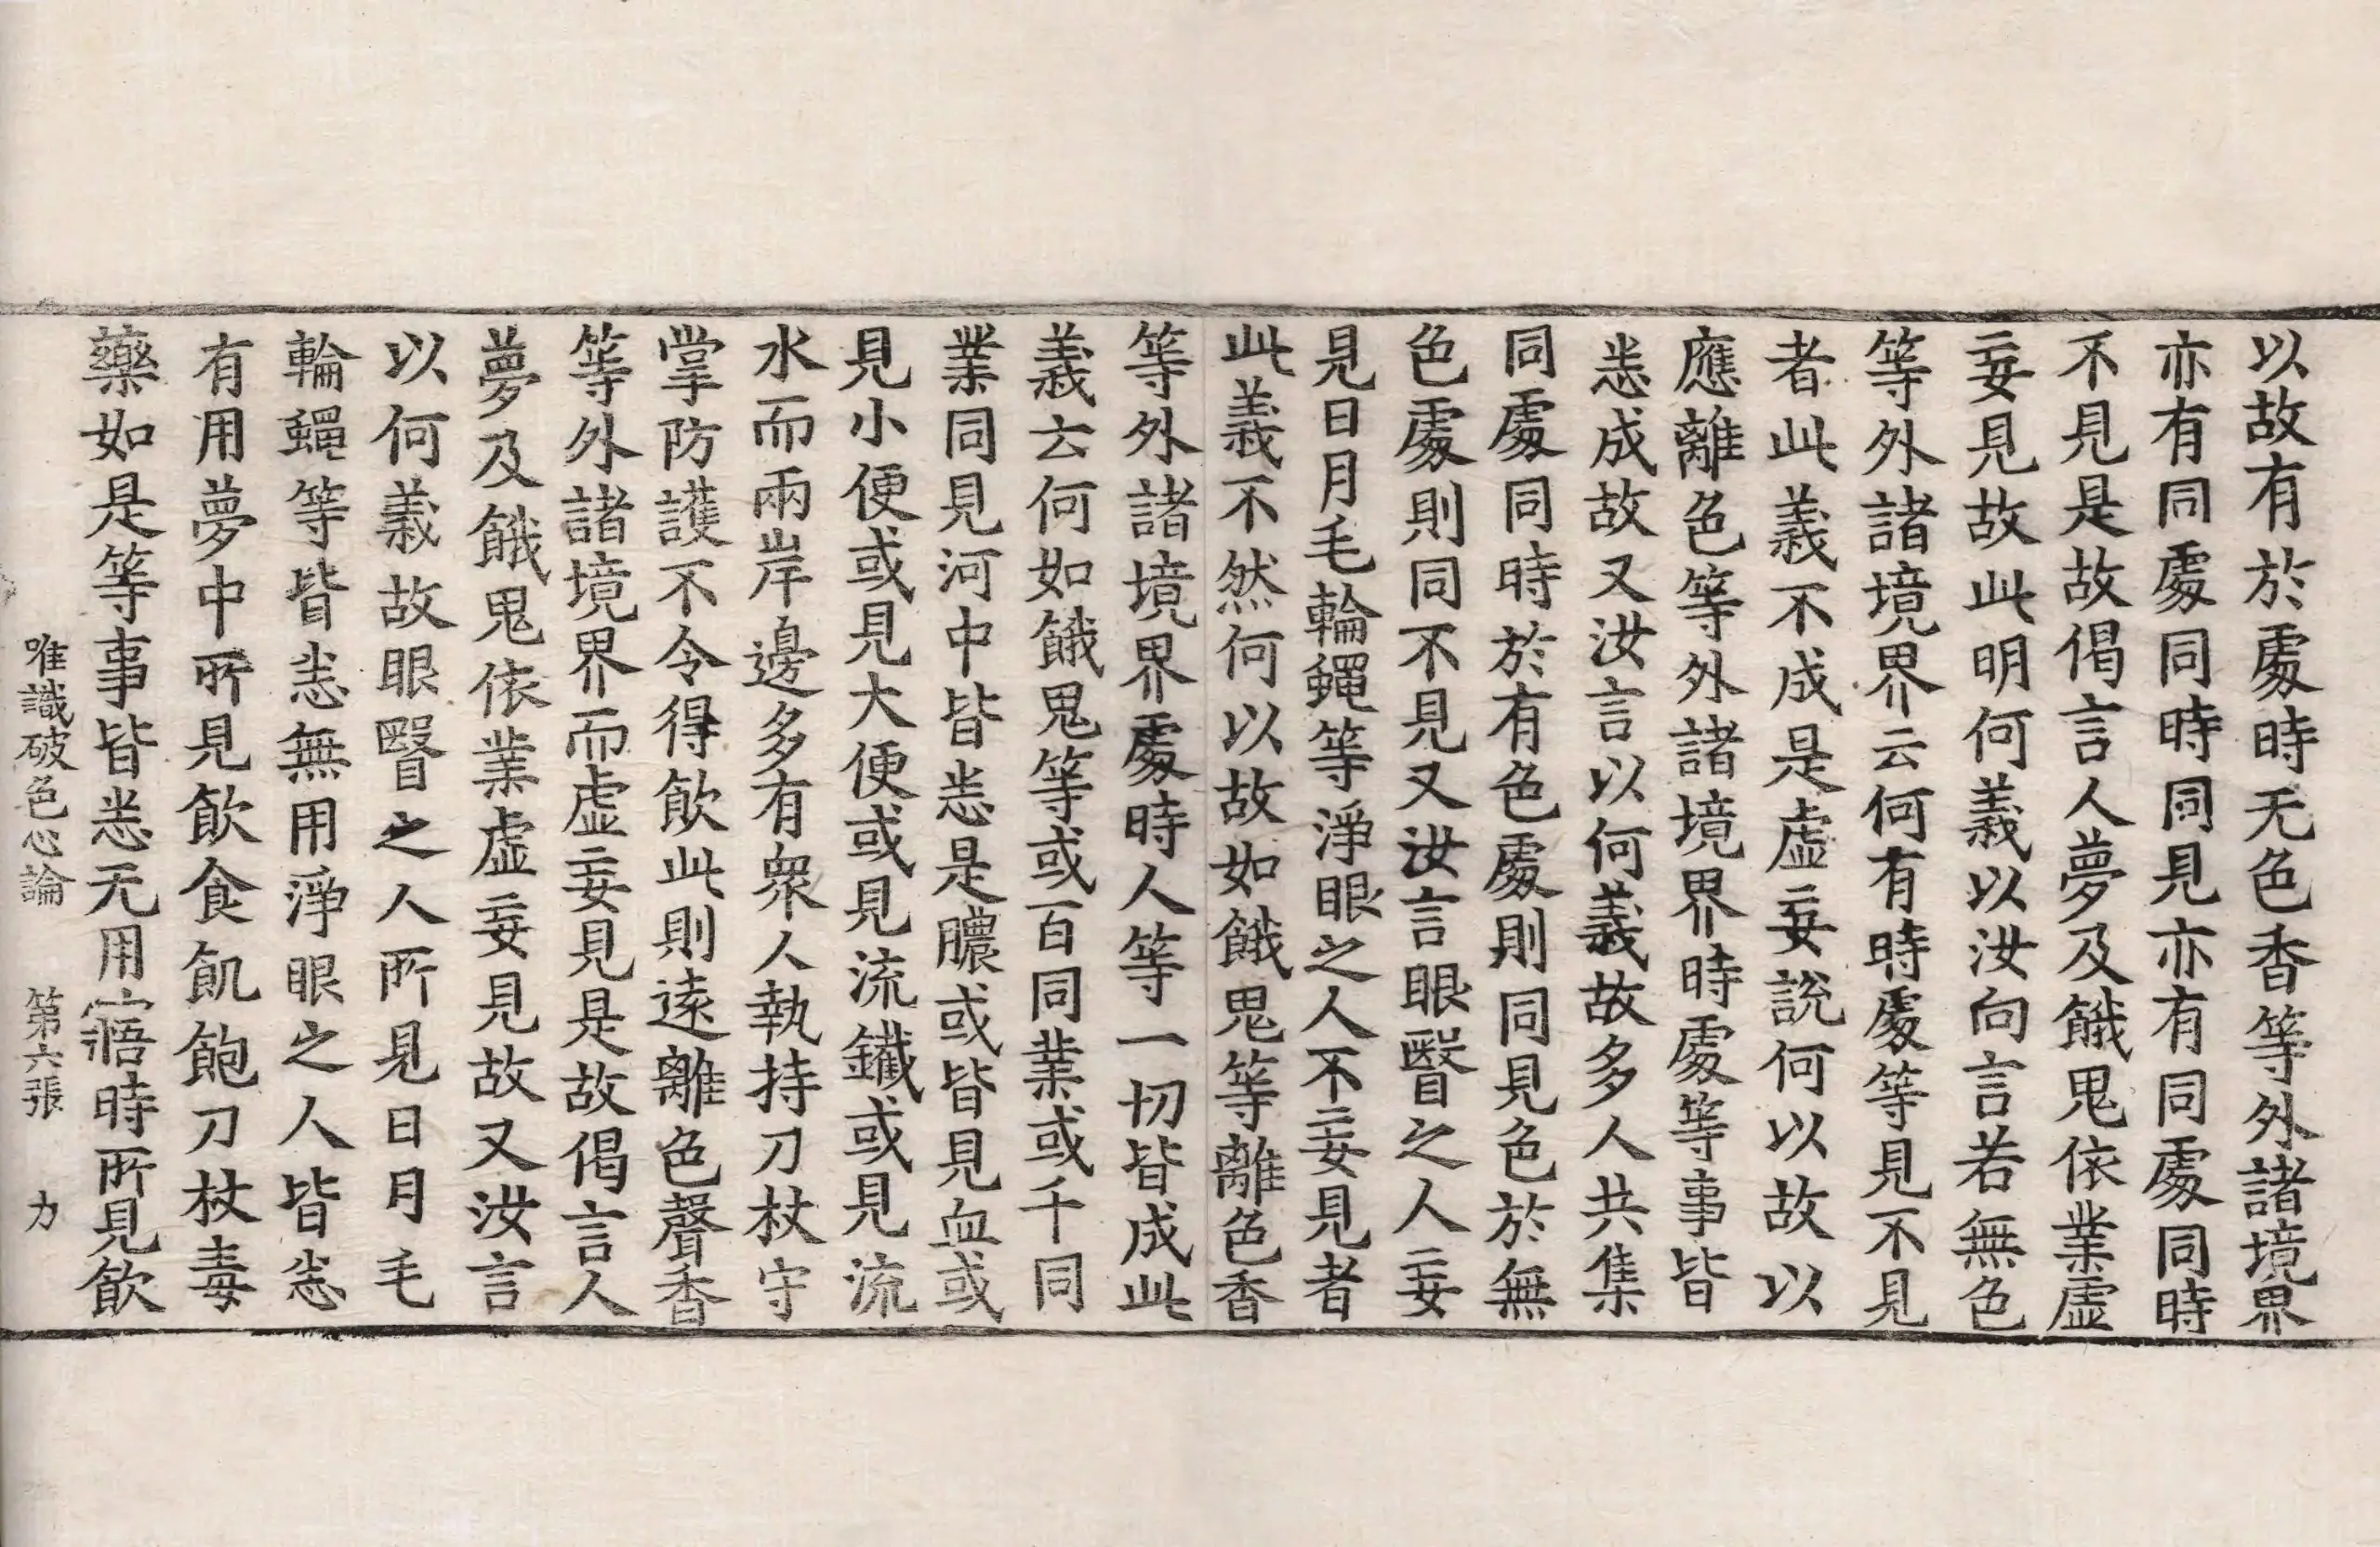 以故有於處時无色香等外諸境界
亦有同處同時同見亦有同處同時
不見是故偈言人夢及餓鬼依業虛
妄見故此明何義以汝向言若無色
等外諸境界云何有時處等見不見
者此義不成是虛妄說何以故以
應離色等外諸境界時處等事皆
悉成故又汝言以何義故多人共集
同處同時於有色處則同見色於無
色處則同不見又汝言眼瞖之人妄
見日月毛輪蠅等淨眼之人不妄見者
此義不然何以故如餓鬼等離色香
等外諸境界處時人等一切皆成此
義云何如餓鬼等或百同業或千同
業同見河中皆悉是膿或皆見血或
見小便或見大便或見流鐵或見流
水而兩岸邊多有衆人執持刀杖守
掌防護不令得飲此則遠離色聲香
等外諸境界而虛妄見是故偈言人
夢及餓鬼依業虛妄見故又汝言
以何義故眼瞖之人所見日月毛
輪蠅等皆悉無用淨眼之人皆悉
有用夢中所見飲食飢飽刀杖毒
藥如是等事皆悉无用寤時所見飲
唯識破色心論 第六張 力